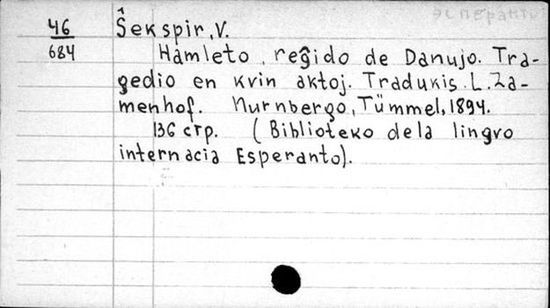 эсперанто
46
684
Ŝekspir, V.
Hamleto, reĝido de Danujo. Tra-
gedio en kvin aktoj. Tradukis L. Za-
menhof. Nurnbergo, Tümmel, 1894.
136 стр. (Biblioteko dela lingvo
internacia Esperanto).